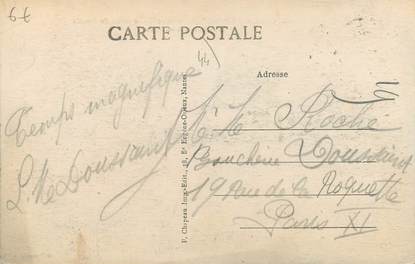 6€
CARTE POSTALE
44
Adresse
Temps magnifique
L. M. Doussaint
P. Chapeau Imp.-Edit., 18, Bd Eugène-Orieux, Nantes
Mr Mme Roché
Boucherie Doussaint
19 Rue de la Roquette
Paris XI